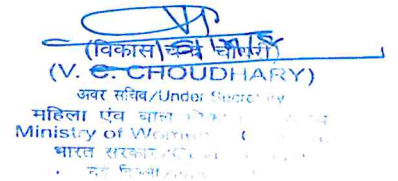 (विकास चन्द्र चौधरी)
(V. C. CHOUDHARY)
अवर सचिव/Under Secretary
महिला एंव बाल
Ministry of Women
भारत सरकार
नई दिल्ली